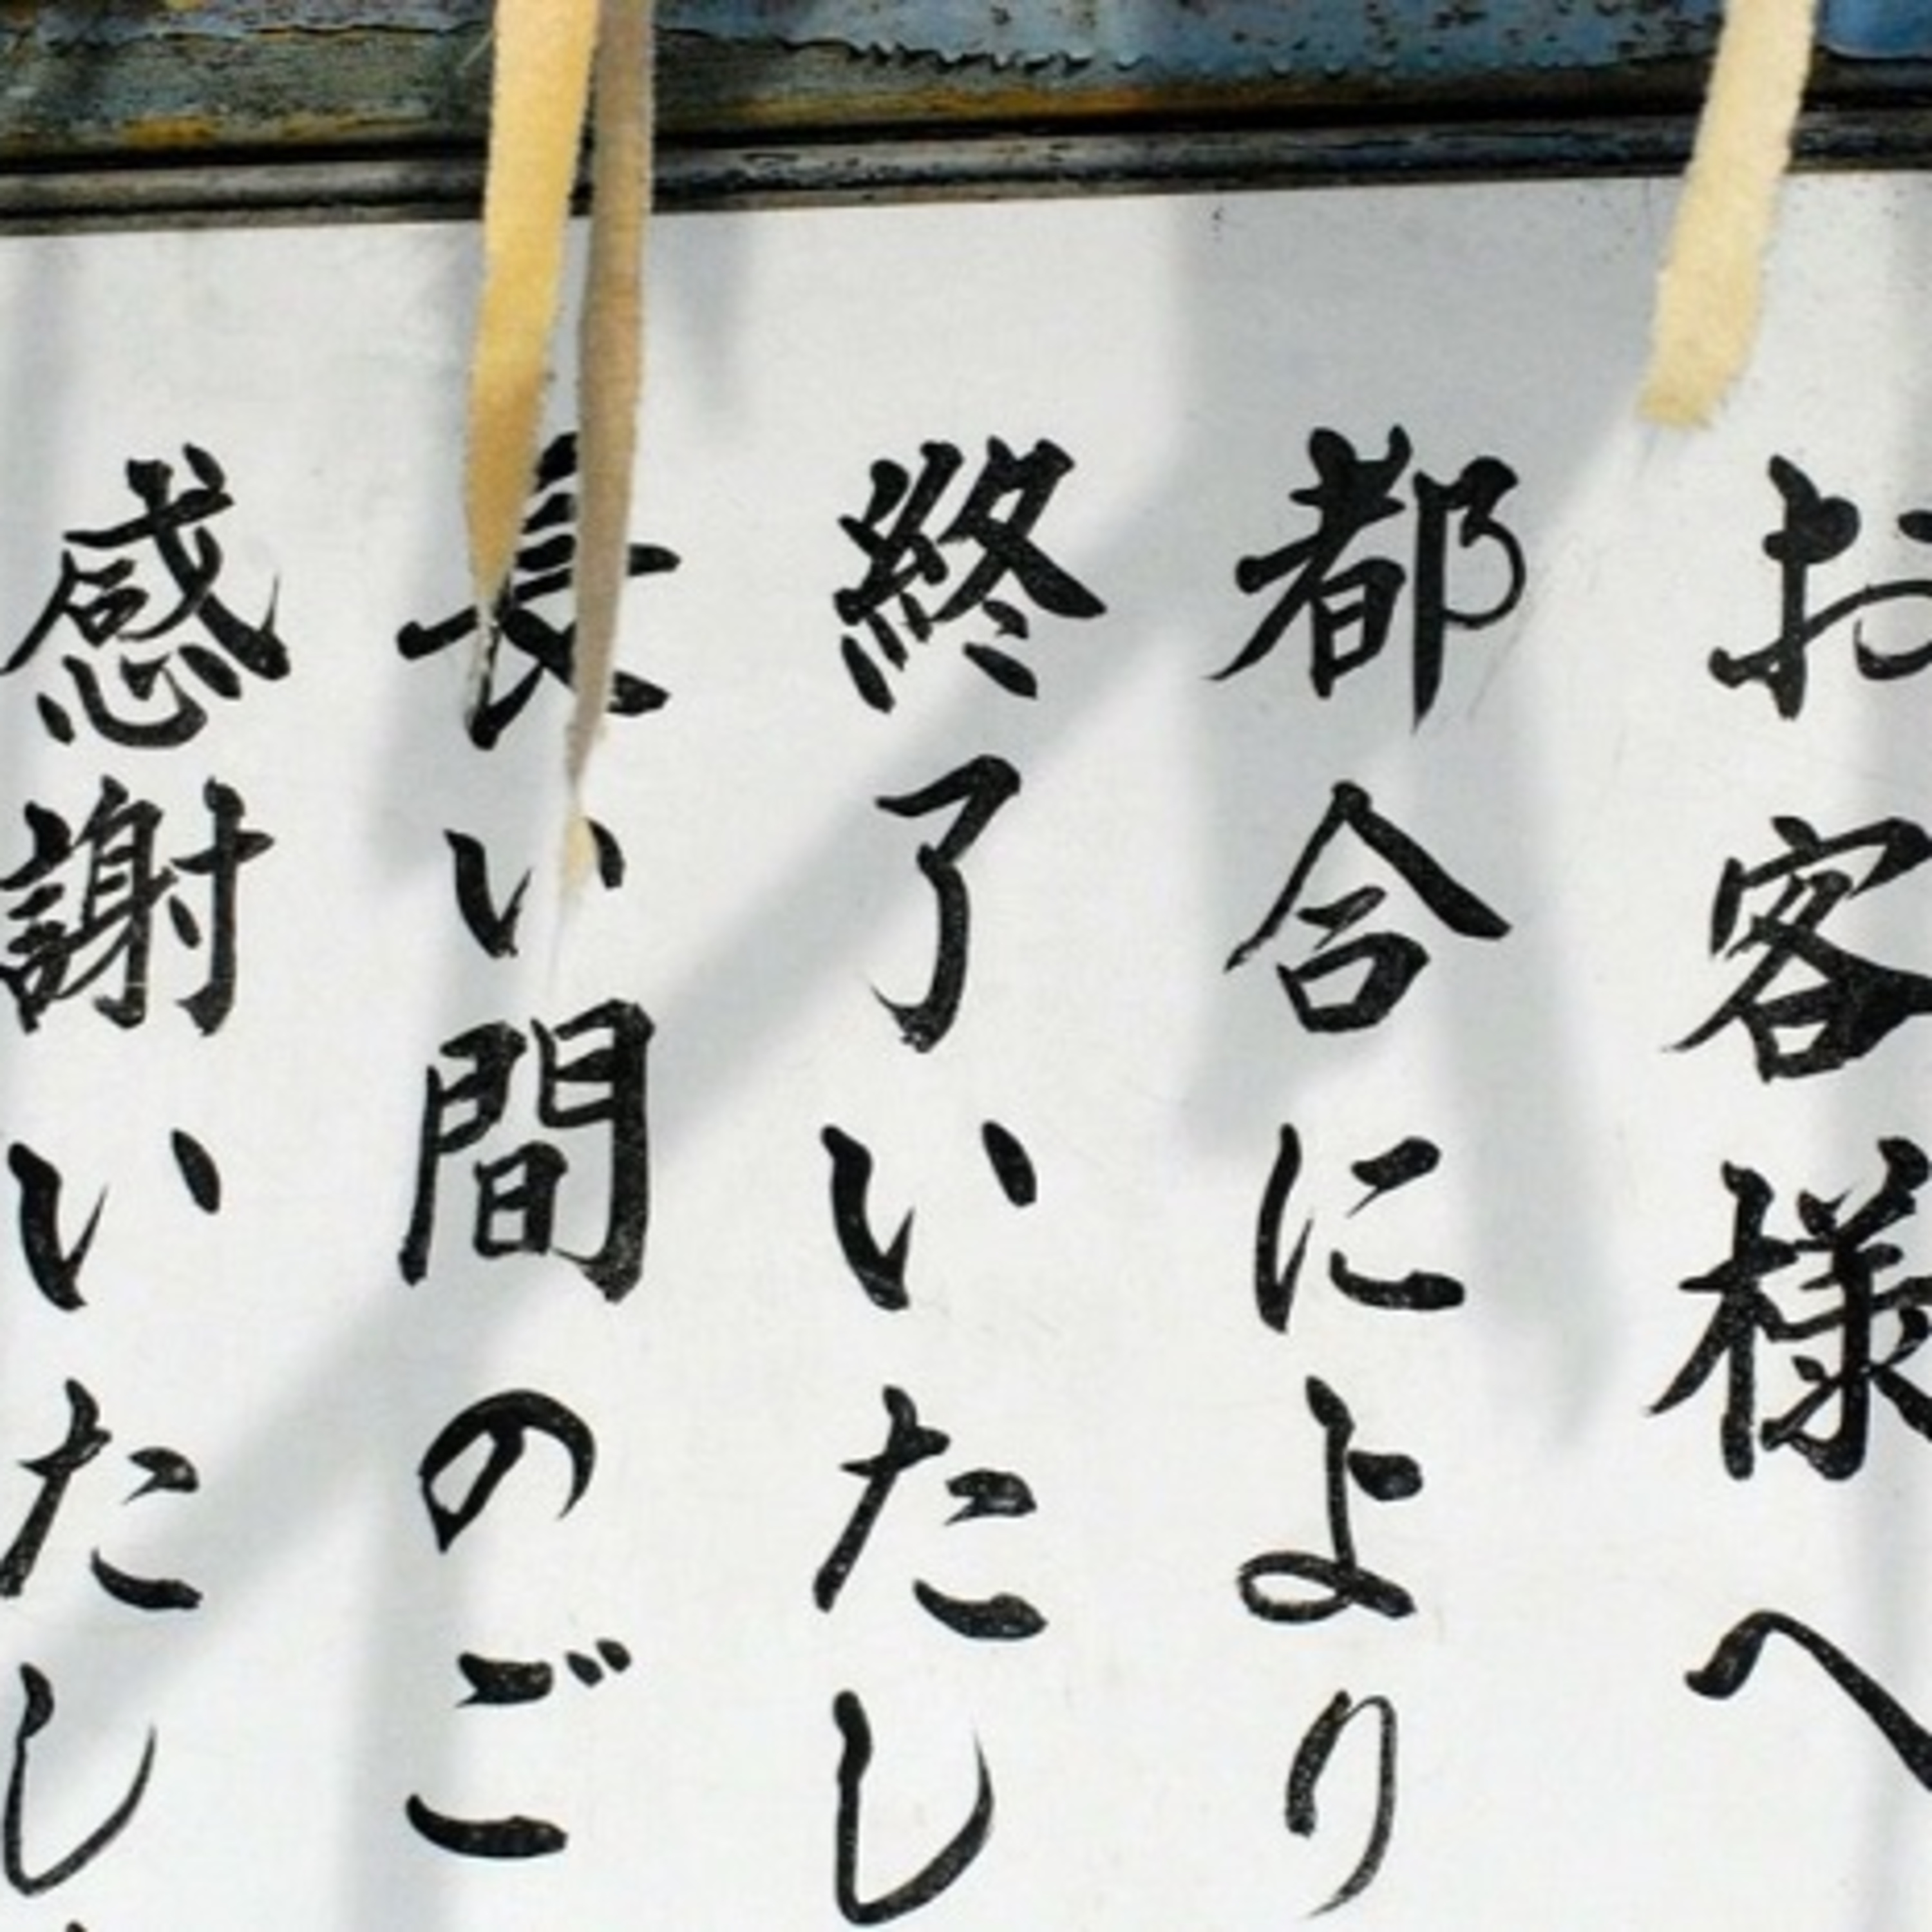 お客様へ
都合により
終了いたし
長い間のご
感謝いたし